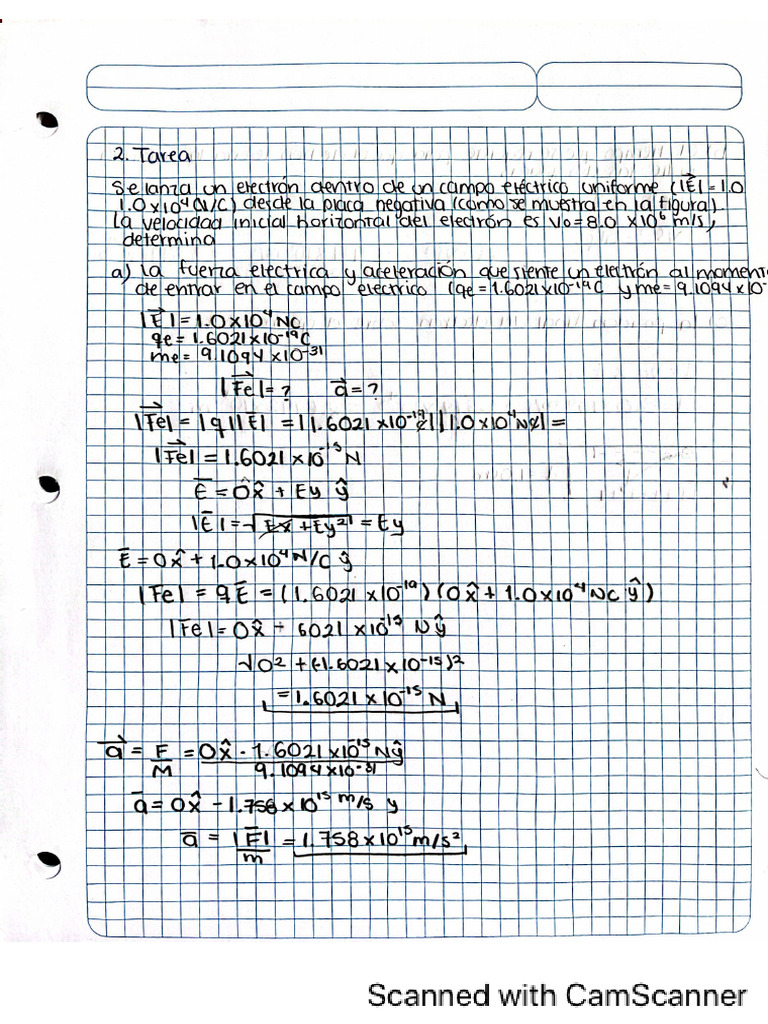 2. Tarea
Se lanza un electrón dentro de un campo eléctrico uniforme (|E⃗|=1.0
1.0x10⁴(N/C) desde la placa negativa (como se muestra en la figura).
La velocidad inicial horizontal del electrón es Vo=8.0 x10⁶ m/s,
determina
a) La fuerza electrica y aceleración que siente un electrón al moment
de entrar en el campo electrico (qe=1.6021x10⁻¹⁹C y me=9.1094x10⁻
|E⃗|=1.0x10⁴ NC
qe=1.6021x10⁻¹⁹C
me=9.1094x10⁻³¹
|F⃗e|=? a⃗=?
|F⃗e|=|q||E⃗|=|1.6021x10⁻¹⁹C||1.0x10⁴NC|=
|F⃗e|=1.6021x10⁻¹⁵N
E̅=0x̂+Ey ŷ
|E̅|=√Ex²+Ey²=Ey
E̅=0x̂+1.0x10⁴N/C ŷ
|Fe|=qE̅=(1.6021x10⁻¹⁹)(0x̂+1.0x10⁴NC ŷ)
|Fe|=0x̂- 6021x10⁻¹⁵ Nŷ
√0²+(-1.6021x10⁻¹⁵)²
=1.6021x10⁻¹⁵N
a⃗=F/M=0x̂-1.6021x10⁻¹⁵Nŷ/9.1094x10⁻³¹
a̅=0x̂-1.758x10¹⁵m/s y
a̅=|E̅|/m=1.758x10¹⁵m/s²
Scanned with CamScanner